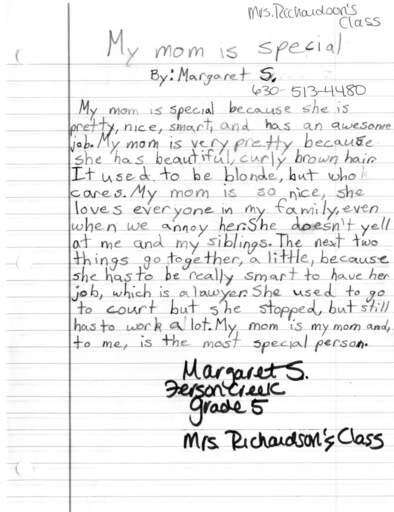 Mrs. Richardson's
Class
My mom is special
By: Margaret S.
630-513-4480
My mom is special because she is
pretty, nice, smart, and has an awesome
job. My mom is very pretty because
she has beautiful, curly brown hair.
It used to be blonde, but who
cares. My mom is so nice, she
loves everyone in my family, even
when we annoy her. She doesn't yell
at me and my siblings. The next two
things go together, a little, because
she has to be really smart to have her
job, which is a lawyer. She used to go
to court but she stopped, but still
has to work a lot. My mom is my mom and,
to me, is the most special person.
Margaret S.
Ferson Creek
Grade 5
Mrs. Richardson's Class